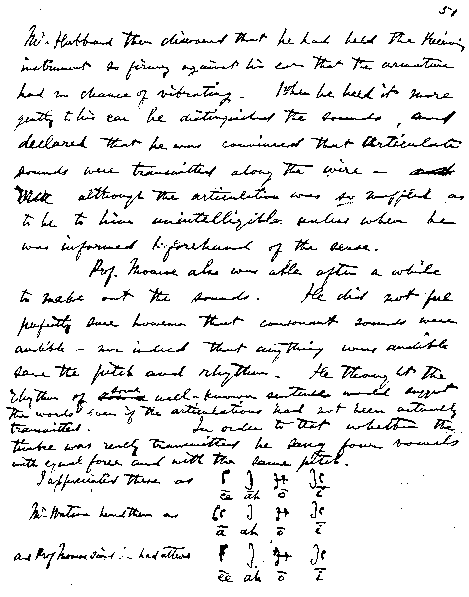 51
Mr. Hubbard then discovered that he had held the Receiving
instrument so firmly against his ear that the armature
had no chance of vibrating. When he held it more
gently to his ear he distinguished the sounds, and
declared that he was convinced that articulate
sounds were transmitted along the wire —
although the articulation was so muffled as
to be to him unintelligible unless when he
was informed beforehand of the sense.
Prof. Monroe also was able after a while
to make out the sounds. He did not feel
perfectly sure however that consonant sounds were
audible — nor indeed that anything was audible
save the pitch and rhythm. He thought the
rhythm of some well-known sentence would suggest
the words even if the articulations had not been actually
transmitted. In order to test whether the
timbre was really transmitted he sang four vowels
with equal force and with the same pitch.
I appreciated these as
ēē ah ō ī
Mr. Watson heard them as
ā ah ō ī
and Prof Monroe said he had uttered
ēē ah ō ī